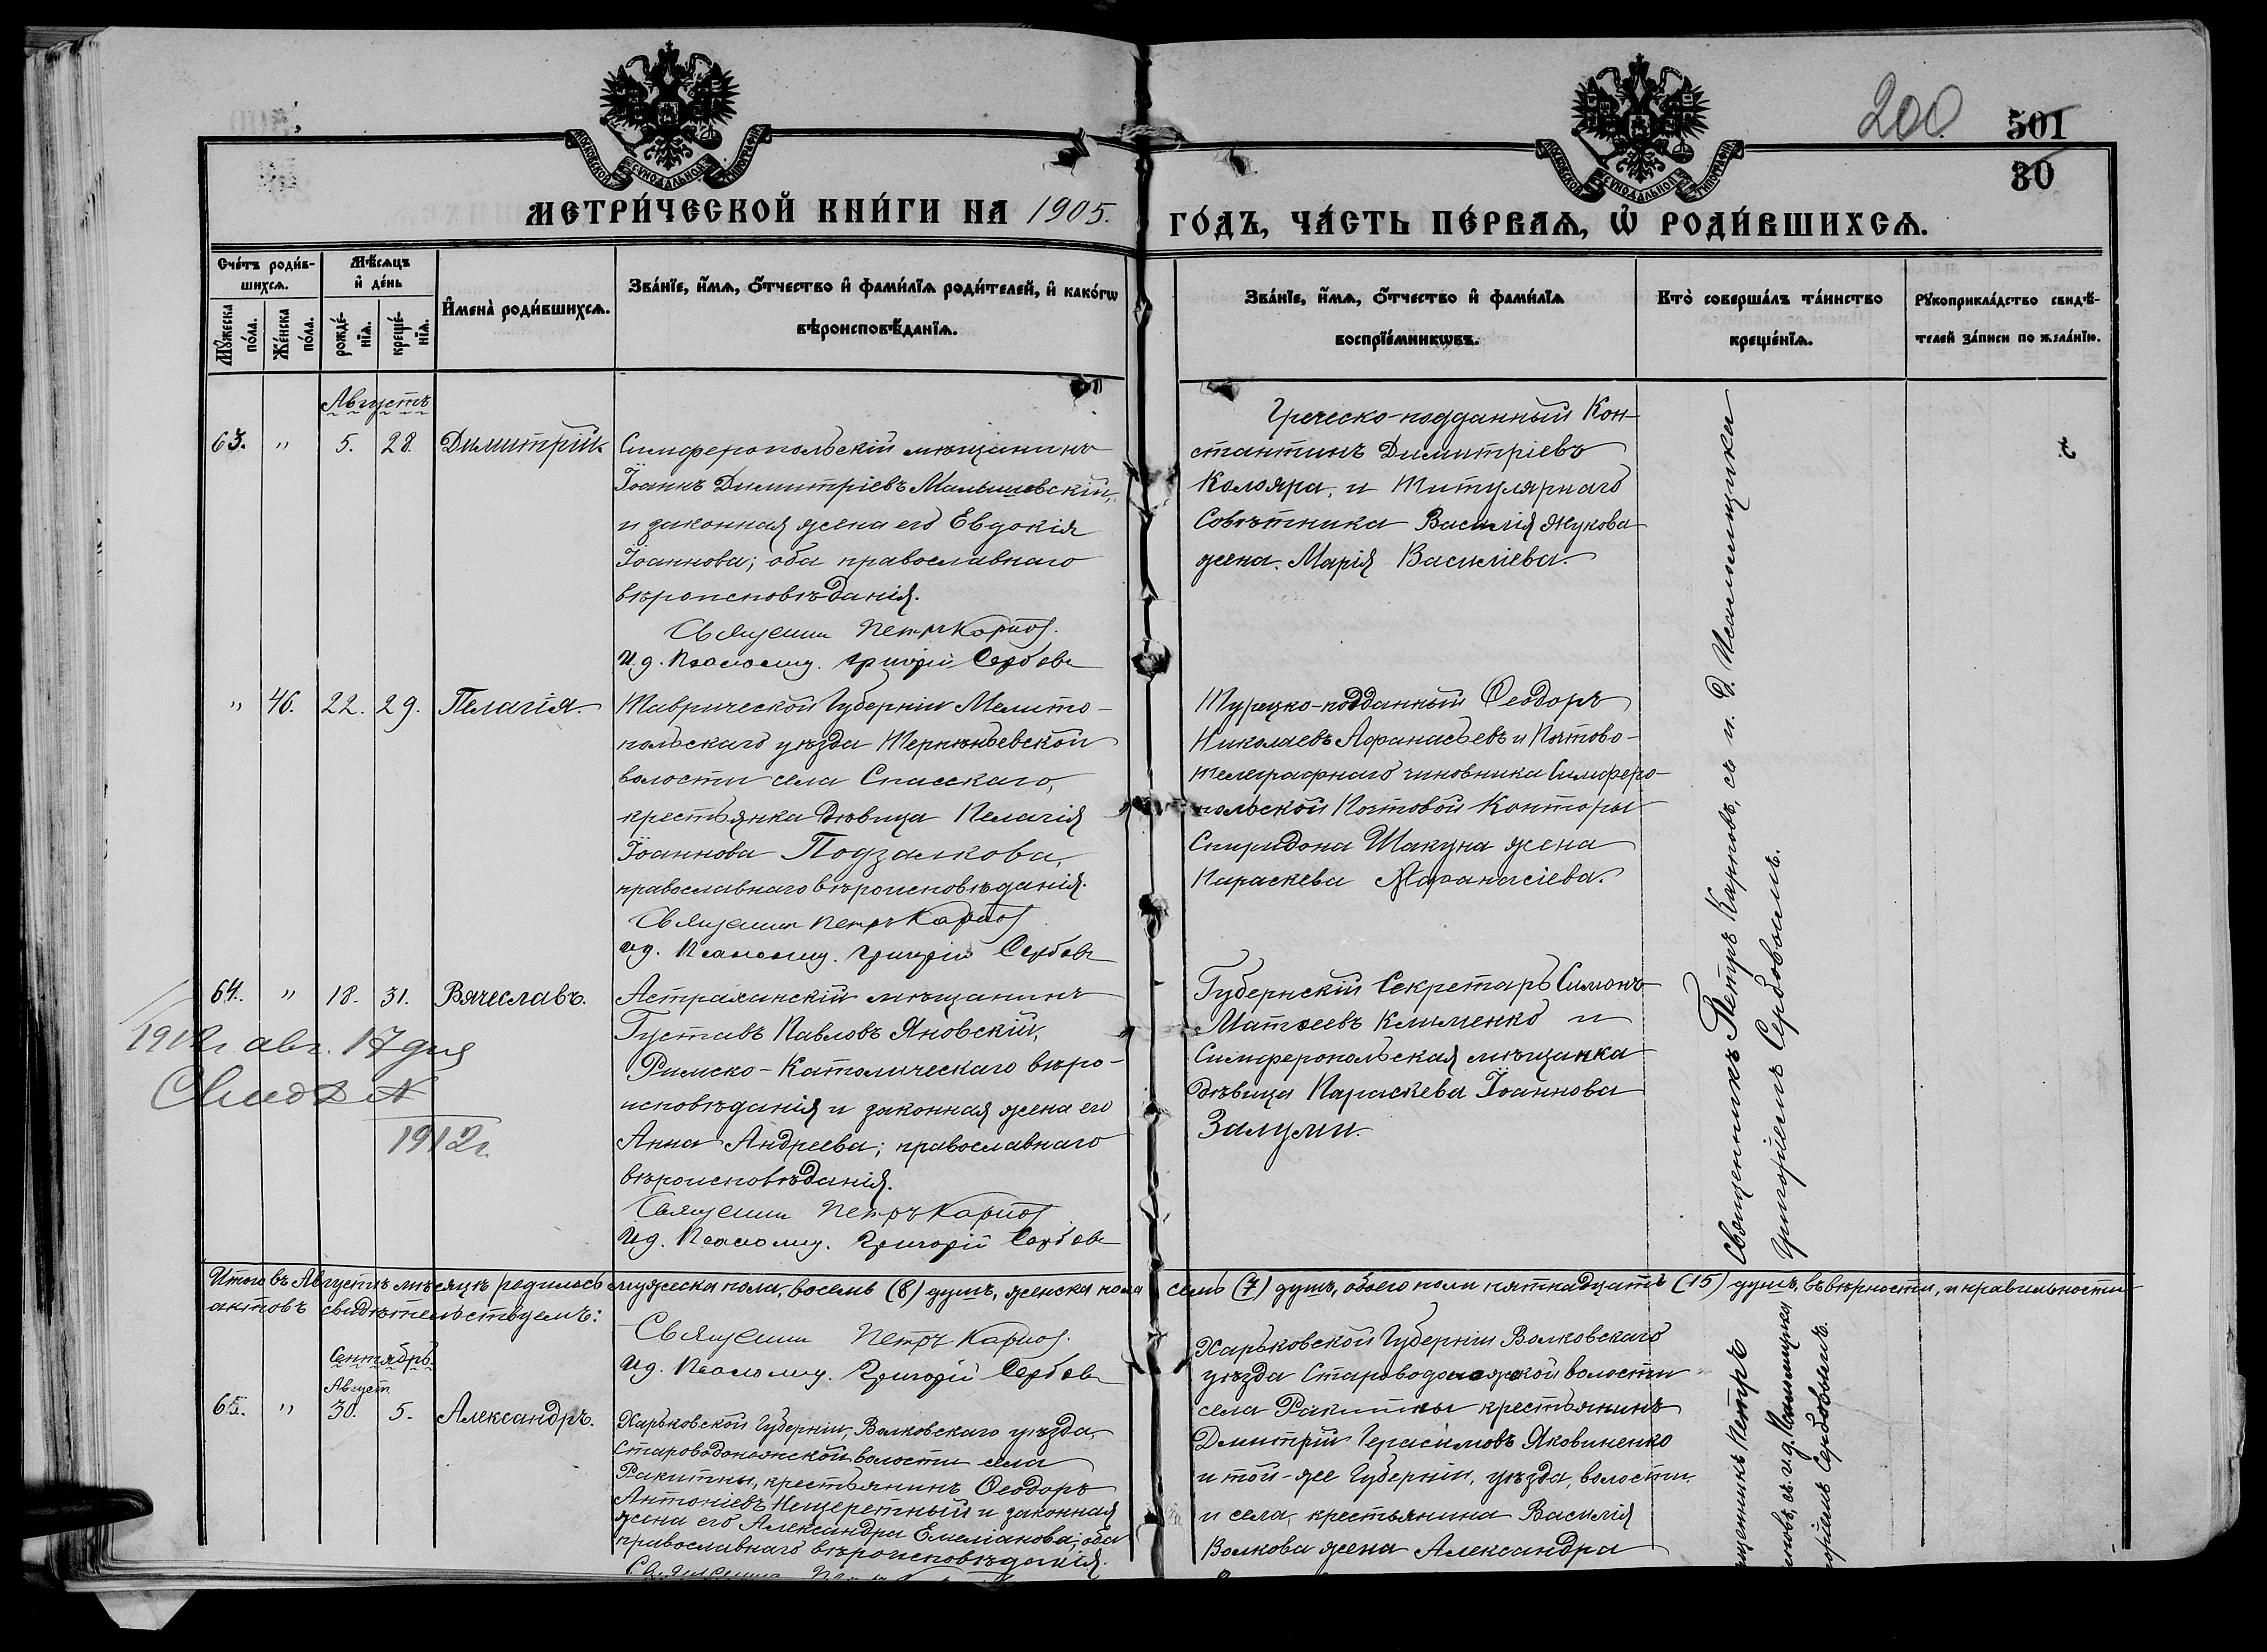 200
501
30
МОСКОВСКОЙ СѴНОДАЛЬНОЙ ТИПОГРАФІИ
МОСКОВСКОЙ СѴНОДАЛЬНОЙ ТИПОГРАФІИ
МЕТРИ́ЧЕСКОЙ КНИ́ГИ НА 1905.
ГО́ДЪ, ЧА́СТЬ ПЕ́РВАѦ, Ѡ҆ РОДИ́ВШИХСѦ.
Сче́тъ роди́в-
шихсѧ.
Мѣ́сѧцъ
и҆ де́нь
Мꙋ́жеска
по́ла.
Же́нска
по́ла.
рожде́-
нїѧ.
креще́-
нїѧ.
И҆мена̀ роди́вшихсѧ.
Зва́нїе, и҆́мѧ, ѻ҆́тчество и҆ фами́лїѧ роди́телей, и҆ како́гѡ
вѣроисповѣ́данїѧ.
Зва́нїе, и҆́мѧ, ѻ҆́тчество и҆ фами́лїѧ
воспрїе́мникѡвъ.
Кто̀ соверша́лъ та́инство
креще́нїѧ.
Рꙋкоприкла́дство свидѣ́-
телей за́писи по жела́нїю.
Августъ
63. " 5. 28. Димитрій.
Симферопольскій мѣщанинъ
Іоаннъ Димитріевъ Малышевскій,
и законная жена его Евдокія
Іоаннова; оба православнаго
вѣроисповѣданія.
Священн Петръ Карпов.
И.д. Псаломщ. Григорій Сербовъ
Греческо-подданный Кон-
стантинъ Димитріевъ
Колояра, и Титулярнаго
Совѣтника Василія Жукова
жена Марія Василіева.
" 46. 22. 29. Пелагія.
Таврической Губерніи Мелито-
польскаго уѣзда Терпѣньевской
волости села Спасскаго,
крестьянка дѣвица Пелагія
Іоаннова Подзалкова,
православнаго вѣроисповѣданія.
Священн Петръ Карпов
И.д. Псаломщ. Григорій Сербовъ
Турецко-подданный Ѳеодоръ
Николаевъ Аѳанасьевъ и Почтово-
телеграфнаго чиновника Симферо-
польской Почтовой Конторы
Спиридона Шакуна жена
Параскева Аѳанасіева.
64. " 18. 31. Вячеславъ.
Астраханскій мѣщанинъ
Густавъ Павловъ Яновскій,
Римско-Католическаго вѣро-
исповѣданія и законная жена его
Анна Андреева; православнаго
вѣроисповѣданія.
Священн Петръ Карпов
И.д. Псаломщ. Григорій Сербовъ
1912г авг. 17 дня
1912г.
Губернскій Секретарь Симонъ
Матѳеевъ Клименко и
Симферопольская мѣщанка
дѣвица Параскева Іоаннова
Залуми.
Священникъ Петръ Карповъ, съ и. д. Псаломщика
Григоріемъ Сербовымъ.
Итого въ Августѣ мѣсяцѣ родилось мужеска пола, восемь (8) душъ, женска пола семь (7) душъ, обоего пола пятнадцать (15) душъ, въ вѣрности, и правильности
актовъ свидѣтельствуемъ:
Священн Петръ Карпов.
И.д. Псаломщ. Григорій Сербовъ
Сентябрь.
Август.
65. " 30. 5. Александръ.
Харьковской Губерніи, Волковскаго уѣзда,
Староводолажской волости села
Ракитны, крестьянинъ Ѳеодоръ
Антоніевъ Нещеретный и законная
жена его Александра Емеліанова; оба
православнаго вѣроисповѣданія.
Харьковской Губерніи Волковскаго
уѣзда Староводолажской волости
села Ракитны крестьянинъ
Дмитрій Герасимовъ Яковиненко
и той-же Губерніи, уѣзда, волости
и села, крестьянина Василія
Волкова жена Александра
щенникъ Петръ
повъ, съ и. д. Псаломщика
горіемъ Сербовымъ.